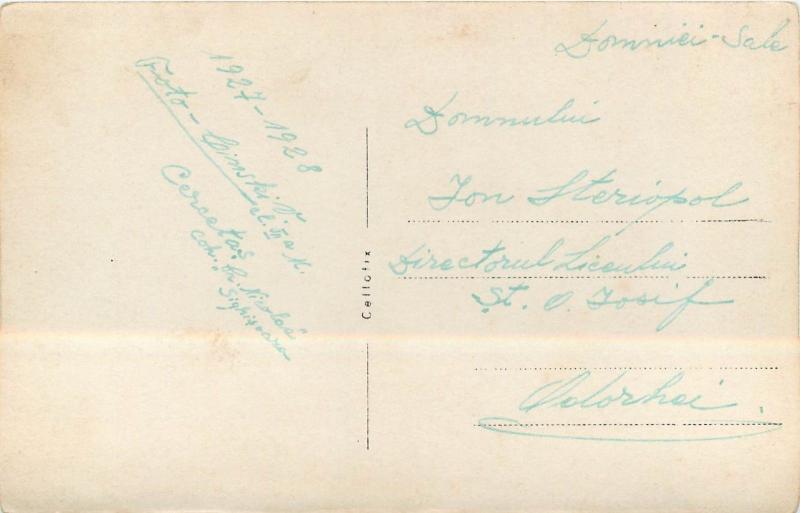 1927-1928
Foto-Climski V.
cl. III a M.
Cercetaș
coh. "Pr. Nicolae"
Sighișoara
Cellofix
Domniei-Sale
Domnului
Ion Steriopol
Directorul Liceului
Șt. O. Iosif
Odorhei.